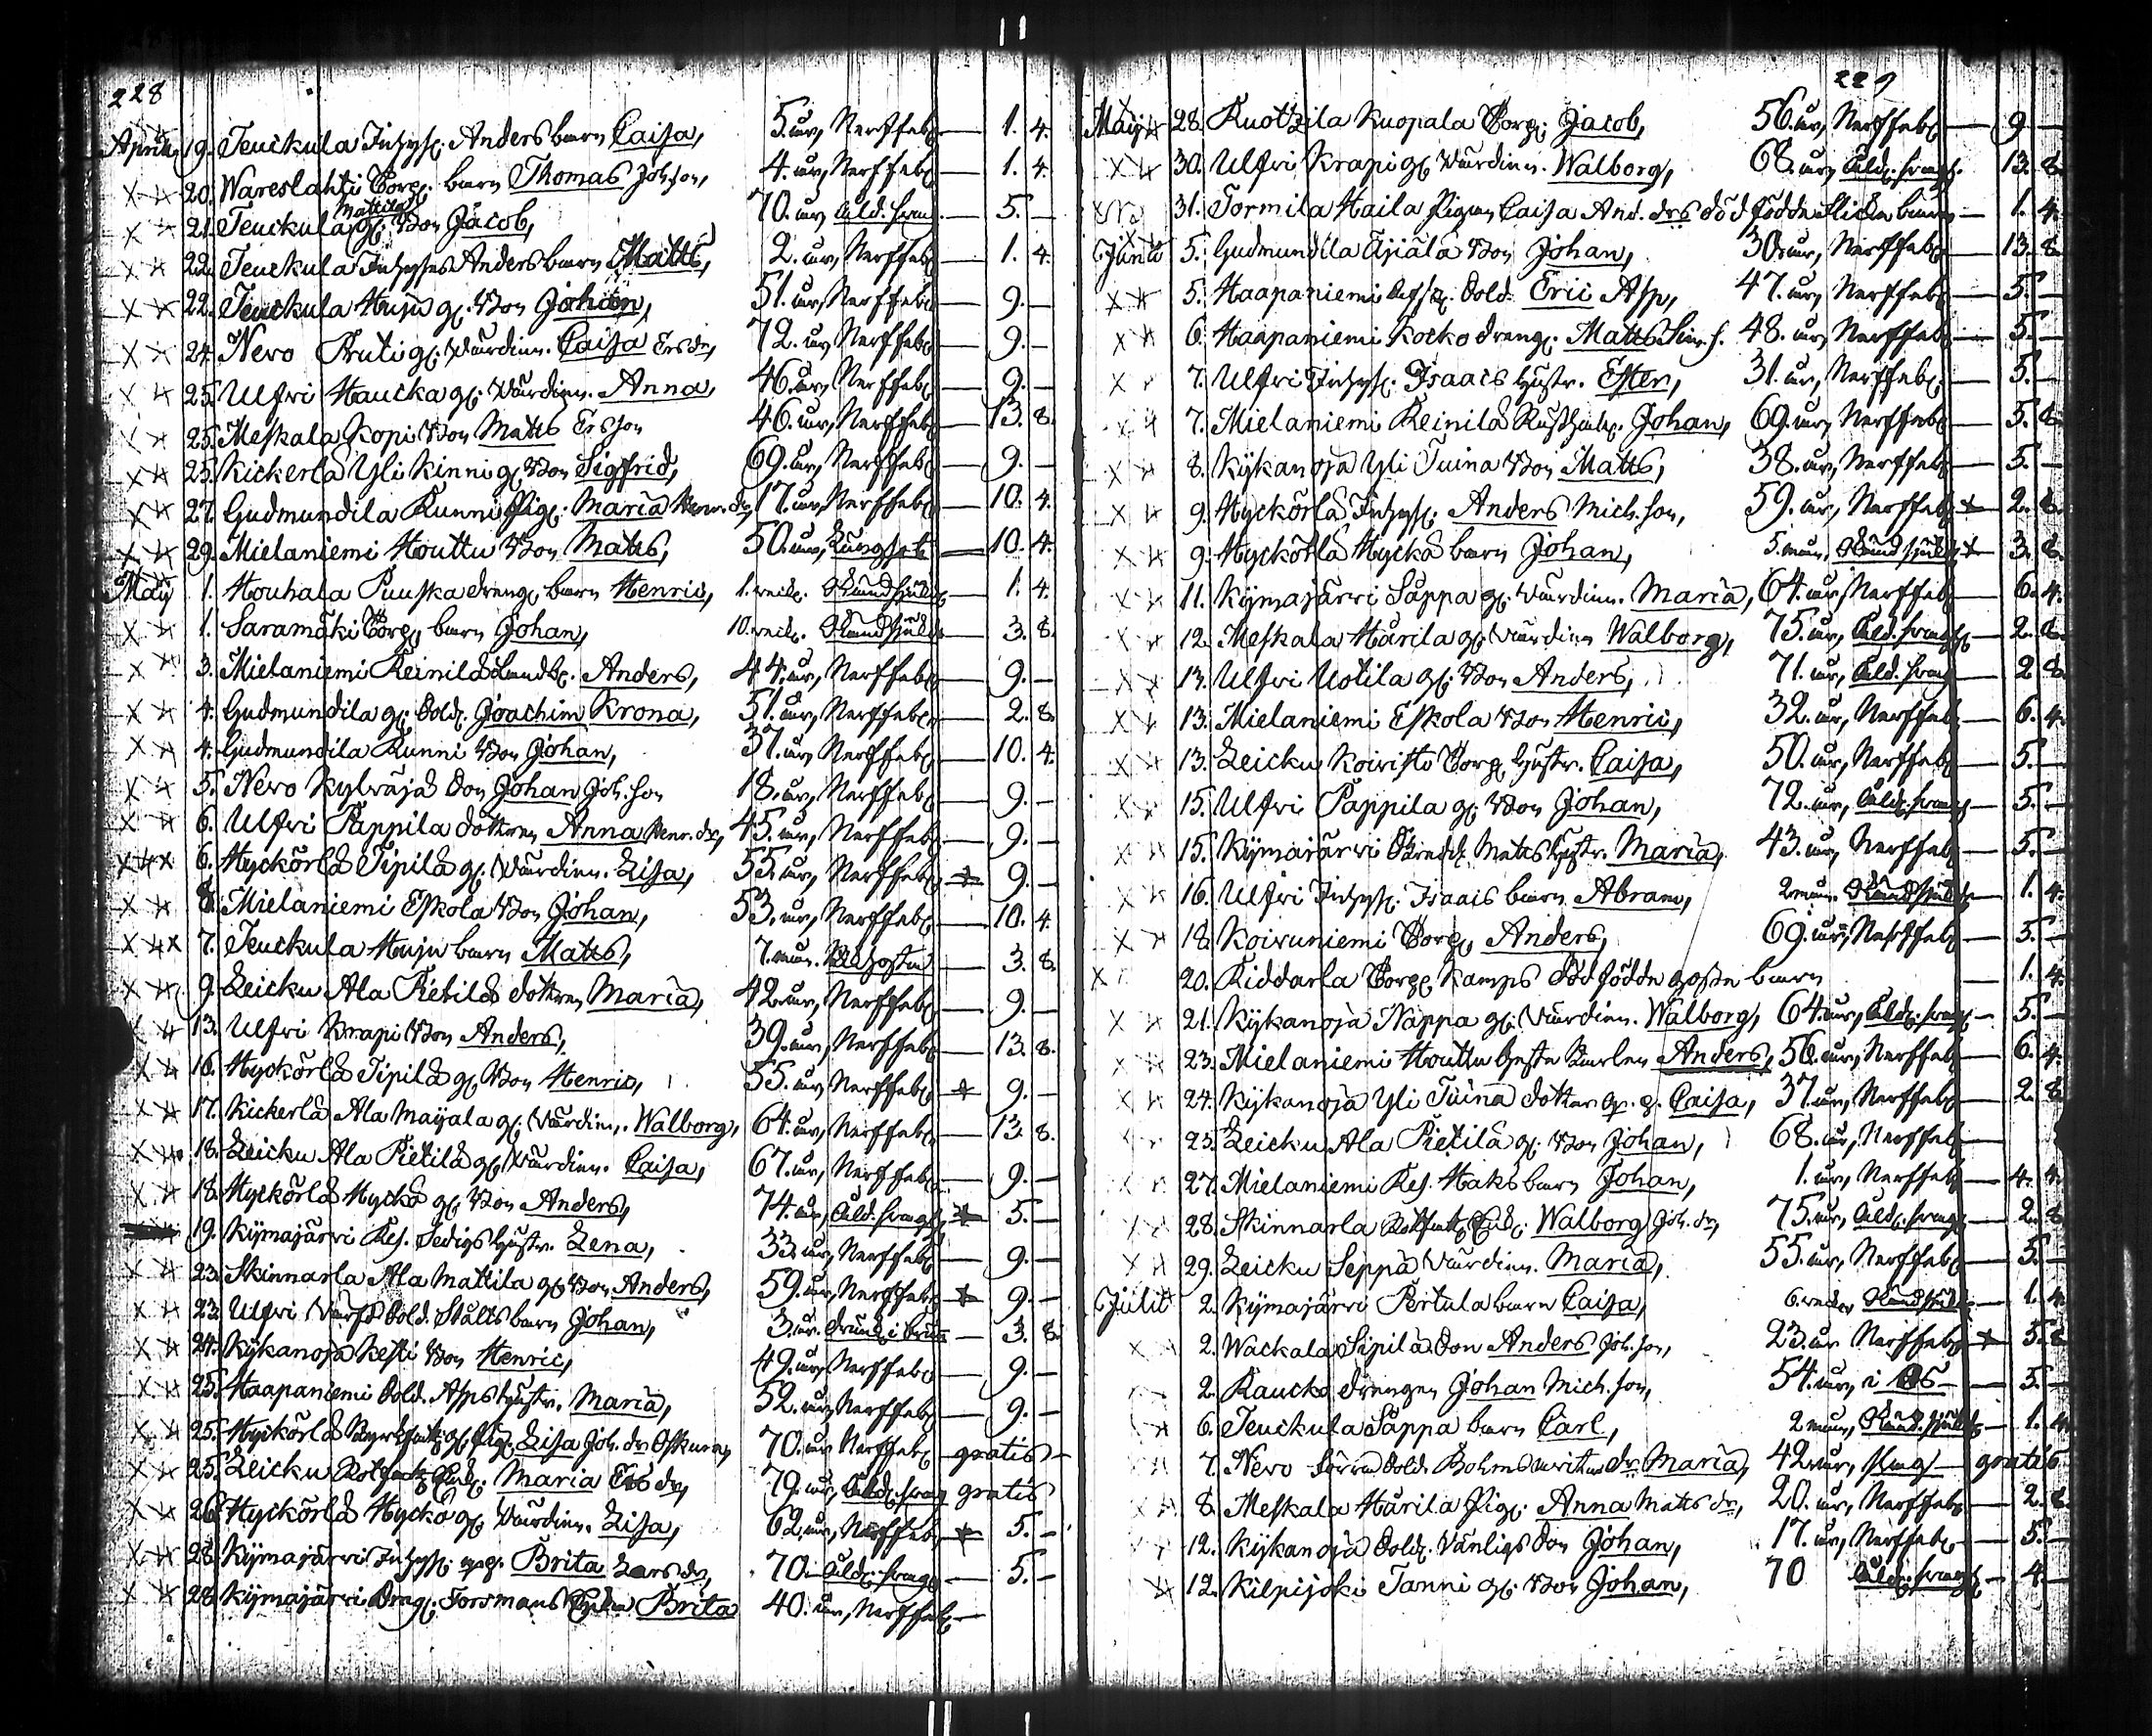 228
April 19. Teuckula Inhys. Anders barn Caisa, 5. år, Nerffeb. 1. 4.
20. Wareslahti Torp. barn Thomas Joh.son, 4. år, Nerffeb. 1. 4.
Mattila
21. Teuckula gl. Bon Jacob, 70. år, Åld. 5. –
22. Teuckula Inhyses Anders barn Matts, 2. år, Nerffeb. 1. 4.
22. Teuckula Huju gl. Bon Johan, 51. år, Nerffeb. 9. –
24. Nero Pruti gl. Wärdin. Caisa Ersdr, 72. år, Nerffeb. 9. –
25. Ulfvi Haucka gl. Wärdin. Anna, 46. år, Nerffeb. 9. –
25. Meskala Kopi Bon Matts Ersson 46. år, Nerffeb. 13. 8.
25. Kickerlä Yli Kinni gl. Bon Sigfrid, 69. år, Nerffeb. 9. –
27. Gudmundila Kunni Pig. Maria Henr. dr, 17. år, Nerffeb. 10. 4.
29. Mielaniemi Houttu Bon Matts, 50. år, Lungsot 10. 4.
May 1. Houhala Punska dreng. barn Henric, 1. veck. Okänd sjukd. 1. 4.
1. Saramäki Torp. barn Johan, 10. veck. Okänd sjukd. 3. 8.
3. Mielaniemi Reinilä Landb. Anders, 44. år, Nerffeb. 9. –
4. Gudmundila gl. Sold. Joachim Krona, 51. år, Nerffeb. 2. 8.
4. Gudmundila Kunni Bon Johan, 37. år, Nerffeb. 10. 4.
5. Nero Kylväjä Son Johan Joh. son 18. år, Nerffeb. 9. –
6. Ulfvi Pappila dottren Anna Henr. dr, 45. år, Nerffeb. 9. –
6. Hyckörlä Sipilä gl. Wärdin. Lisa, 55. år, Nerffeb. 9. –
8. Mielaniemi Eskola Bon Johan, 53. år, Nerffeb. 10. 4
7. Teuckula Huju barn Matts, 7. mån. 3. 8.
9. Leicku Ala Pietilä dottren Maria, 42. år, Nerffeb. 9. –
13. Ulfvi Krapi Bon Anders, 39. år, Nerffeb. 13. 8.
16. Hyckörlä Sipilä gl. Bon Henric, 55. år, Nerffeb. 9. –
17. Kickerlä Ala Mayala gl. Wärdin. Walborg, 64. år, Nerffeb. 13. 8.
18. Leicku Ala Pietilä gl. Wärdin. Caisa, 67. år, Nerffeb. 9. –
18. Hyckörlä Hyckä gl. Bon Anders, 74. år, Åld. 5. –
19. Kijmajärvi Res. Sedigs hustr. Lena, 33. år, Nerffeb. 9. –
23. Skinnarla Ala Mattila gl. Bon Anders, 59. år, Nerffeb. 9. –
23. Ulfvi Sold. Stålts barn Johan, 3. år. drunk. i brun 3. 8.
24. Kijkanoja Kesti Bon Henric, 49. år, Nerffeb. 9. –
25. Haapaniemi Sold. Asps hustr. Maria, 52. år, Nerffeb. 9. –
25. Hyckörlä gl. Pig. Lisa Joh. dr 70. år Nerffeb. gratis
25. Leicku Maria Ers dr, 79. år, Åld. gratis
26. Hyckörlä Hyckä gl. Wärdin. Lisa, 62. år, Nerffeb. 5. –
28. Kijmajärvi Inhys. Brita Lars dr, 70. Åld. 5. –
28. Kijmajärvi Drag. Forsmans Brita 40. år, Nerffeb.
229
May 28. Kuotzila Kuopala Torp. Jacob, 56. år, Nerffeb. 9 –
30. Ulfvi Krapi gl. Wärdin. Walborg, 68. år, Åld. 13. 8.
31. Tormila Haila Pigan Caisa And. drs död födde flicka barn 1. 4.
Junii 5. Gudmundila Äijälä Bon Johan, 30. år, Nerffeb. 13. 8.
5. Haapaniemi Sold. Eric Asp, 47. år, Nerffeb. 5. –
6. Haapaniemi Kocko dreng. Matts Sim. s. 48. år, Nerffeb. 5. –
7. Ulfvi Inhys. Isaacs hustr. Ester, 31. år, Nerffeb. 5. –
7. Mielaniemi Reinilä Rusthål. Johan, 69. år, Nerffeb. 5. 8.
8. Kijkanoja Yli Tuina Bon Matts, 38. år, Nerffeb. 5. –
9. Hyckörlä Inhys. Anders Mich. son, 59. år, Nerffeb. 2. 8.
9. Hyckörlä Hyckä barn Johan, 5. mån. Okänd sjukd. 3. 8.
11. Kijmajärvi Sappa gl. Wärdin. Maria, 64. år, Nerffeb. 6. 4.
12. Meskala Härila gl. Wärdin Walborg, 75. år, Åld. 2. 8.
13. Ulfvi Uotila gl. Bon Anders, 71. år, Åld. 2 8.
13. Mielaniemi Eskola Bon Henric, 32. år, Nerffeb. 6. 4.
13. Leicku Koivisto Torp. hustr. Caisa, 50. år, Nerffeb. 5. –
15. Ulfvi Pappila gl. Bon Johan, 72. år, Åld. 5. –
15. Kijmajärvi Matts hustr. Maria, 43. år, Nerffeb. 5. –
16. Ulfvi Inhys. Isaacs barn Abram, 2 mån. Okänd sjukd. 1. 4.
18. Koivuniemi Torp. Anders, 69. år, Nerffeb. 5. –
20. Kiddarla Torp. Kamps död födde gosse barn 1. 4.
21. Kijkanoja Nappa gl. Wärdin. Walborg, 64. år, Åld. 5. –
23. Mielaniemi Houttu Anders, 56. år, Nerffeb. 6. 4.
24. Kijkanoja Yli Tuina dotter Caisa, 37. år, Nerffeb. 2. 8
23. Leicku Ala Pietilä gl. Bon Johan, 68. år, Nerffeb.
27. Mielaniemi Res. Haks barn Johan, 1. år, Nerffeb. 4. 4.
28. Skinnarla Walborg Joh. dr, 75. år, Åld. 2. 8
29. Leicku Seppä Wärdin. Maria, 55. år, Nerffeb. 5. –
Julii 2. Kijmajärvi Pertula barn Caisa, 6. veckor Okänd sjukd. 1. 4.
2. Wackala Sipilä Son Anders Joh. son, 23. år Nerffeb. 5. 8
2. Raucko drengen Johan Mich. son, 54. år, 5. –
6. Teuckula Sappa barn Carl, 2 mån, Okänd sjukd. 1. 4.
7. Nero Sold. Bohms dr Maria, 42. år, slag gratis
8. Meskala Härila Pig. Anna Matts dr, 20. år, Nerffeb. 2. 8.
12. Kijkanoja Sold. Vänligs Son Johan, 17. år, Nerffeb. 5. –
12. Kilpijoki Tanni gl. Bon Johan, 70 Åld. 4. –